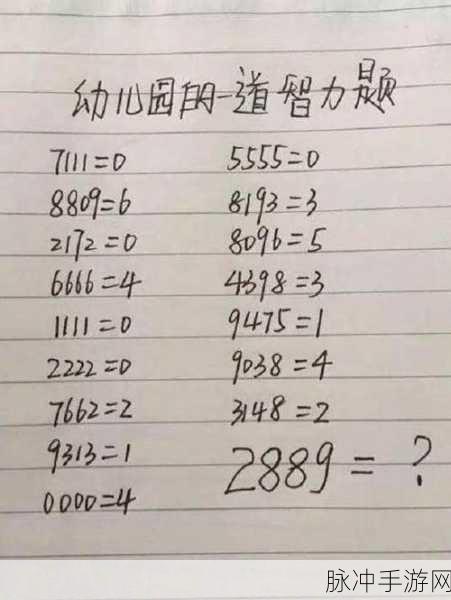 幼儿园的一道智力题
7111=0
8809=6
2172=0
6666=4
1111=0
2222=0
7662=2
9313=1
0000=4
5555=0
8193=3
8096=5
4398=3
9475=1
9038=4
3148=2
2889=?
脉冲手游网